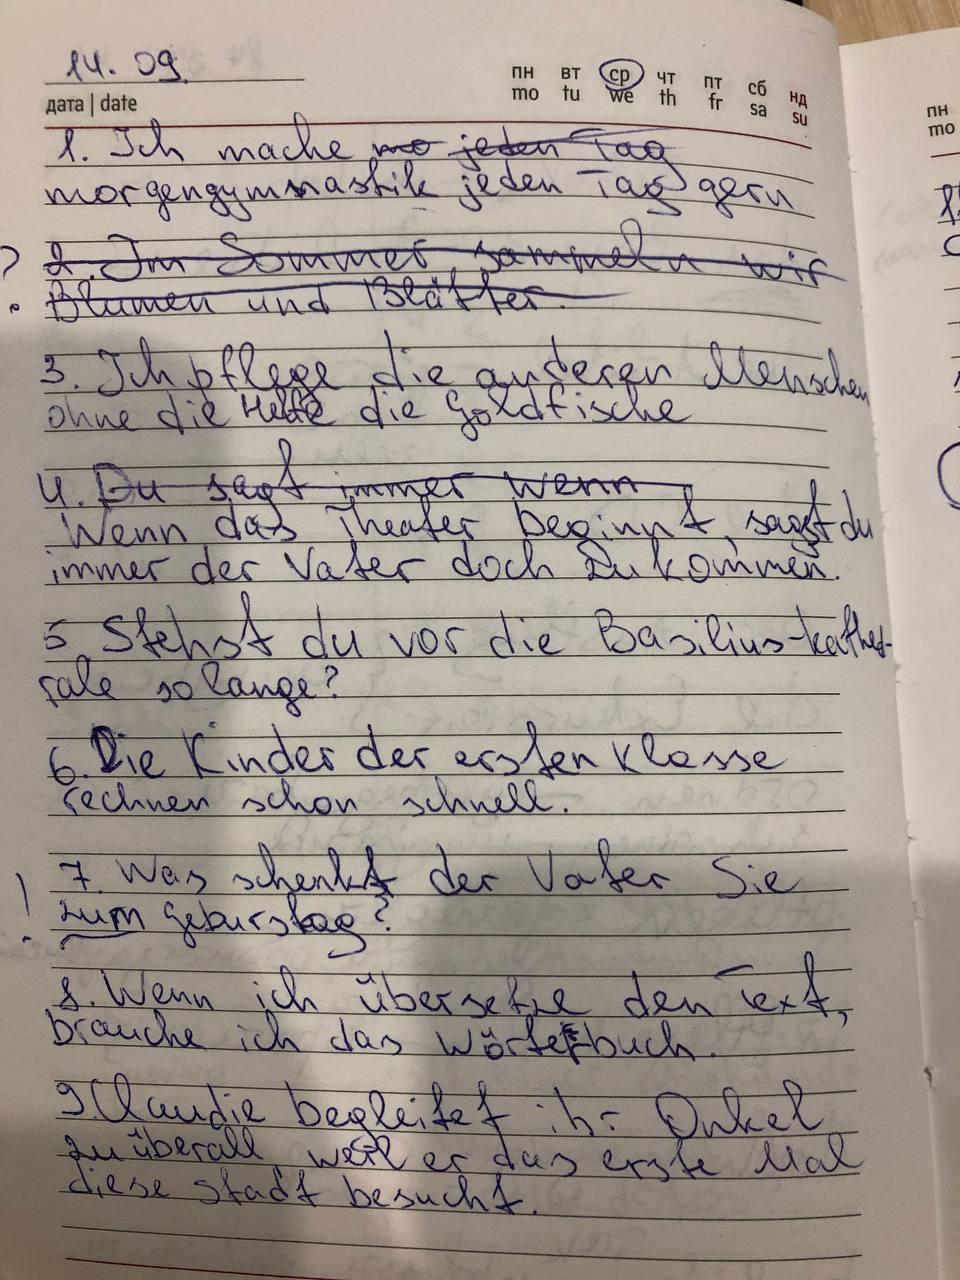 14. 09
дата | date
пн вт ср чт пт сб нд
mo tu we th fr sa su
пн
mo
1. Ich mache mo jeden Tag
morgengymnastik jeden Tag gern
? 2. Im Sommer sammeln wir
Blumen und Blätter.
3. Ich pflege die anderen Menschen
ohne die Helfe die Goldfische
4. Du sagt immer wenn
Wenn das Theater beginnt, sagst du
immer der Vater doch zu kommen.
5. Stehst du vor die Basilius-kathed-
rale so lange?
6. Die Kinder der ersten Klasse
rechnen schon schnell.
! 7. Was schenkt der Vater Sie
zum geburstag?
8. Wenn ich übersetze den Text,
brauche ich das Wörterbuch.
9. Claudie begleitet ihr Onkel
zu überall weil er das erste Mal
diese stadt besucht.